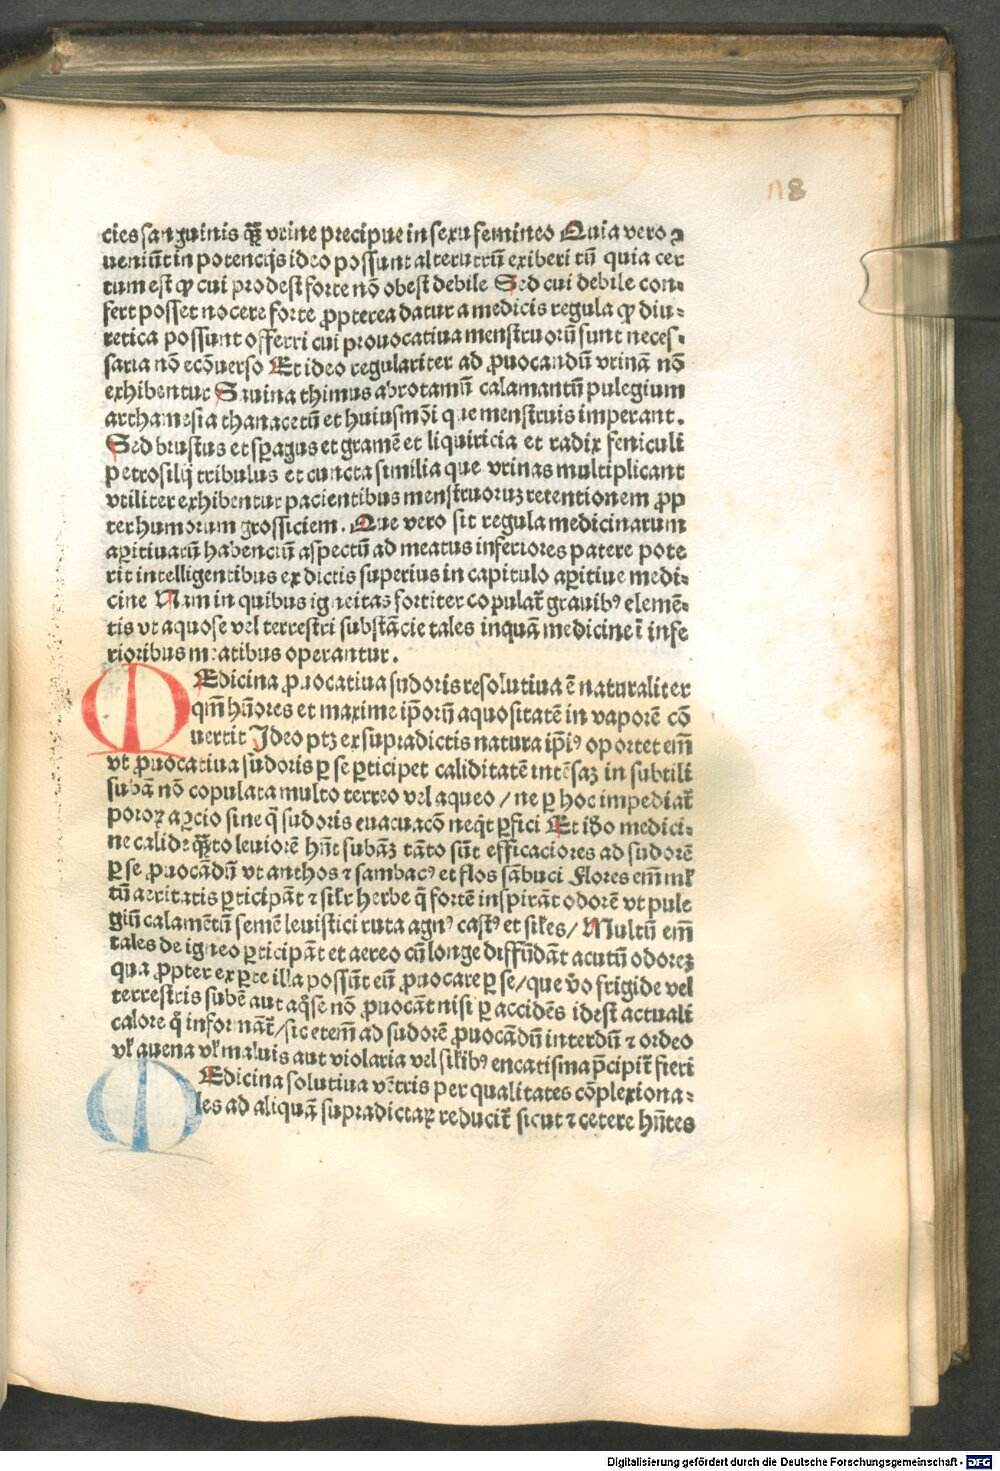 118
cies sanguinis qȝ̃ vrine precipue in sexu femineo Quia vero ꝯ
ueniũt in potencijs ideo possunt alterutrũ exiberi tñ quia cer
tum est ꝙ cui prodest forte nõ obest debile Sed cui debile con⸗
fert posset nocere forte ꝓpterea datur a medicis regula ꝙ diu⸗
retica possunt offerri cui prouocatiua menstruorũ sunt neces⸗
saria nõ ecõuerso Et ideo regulariter ad ꝓuocandũ vrinã nõ
exhibentur Sauina thimus abrotamũ calamantũ pulegium
arthamesia thanacetũ et huiusmõi que menstruis imperant.
Sed bruscus et sꝑagus et gramẽ et liquiricia et radix feniculi
petrosilij tribulus et cuncta similia que vrinas multiplicant
vtiliter exhibentur pacientibus menstruoruȝ retentionem ꝓp
ter humorum grossiciem. Que vero sit regula medicinarum
aꝑitiuarũ habenciũ aspectũ ad meatus inferiores patere pote
rit intelligentibus ex dictis superius in capitulo aꝑitiue medi⸗
cine Nam in quibus igneitas fortiter copulat̃ grauibꝰ elemẽ⸗
tis vt aquose vel terrestri substãcie tales inquã medicine ĩ infe
rioribus meatibus operantur.
MEdicina ꝓuocatiua sudoris resolutiua ẽ naturaliter
qm̃ hũores et maxime ip̃orũ aquositatẽ in vaporẽ cõ
uertit Ideo ptȝ ex supradictis natura ip̃iꝰ oportet em̃
vt ꝓuocatiua sudoris ꝑ se ꝑticipet caliditatẽ intẽsaȝ in subtili
subãn nõ copulata multo terreo vel aqueo / ne ꝑ hoc impediat̃
poroꝝ aꝑcio sine q̃ sudoris euacuacõ neq̃t ꝑfici Et iḋo medici⸗
ne calide qȝ̃to leuiorẽ hñt subãȝ tãto sũt efficaciores ad sudorẽ
ꝑ se ꝓuocãdũ vt anthos ⁊ sambacꝰ et flos sãbuci Flores em̃ ml̃
tũ aeritatis ꝑticipãt ⁊ sil̃r herbe q̃ fortẽ inspirãt odorẽ vt pule
giũ calamẽtũ semẽ leuistici ruta agnꝰ castꝰ et sil̃es / Multũ em̃
tales de igneo ꝑticipãt et aereo cũ longe diffũdãt acutũ odoreȝ
qua ꝓpter ex ꝑte illa possũt eũ ꝓuocare ꝑ se / que v̊o frigide vel
terrestris subẽ aut aq̃se nõ ꝓuocãt nisi ꝑ accidẽs idest actuali
calore q̊ informãt̃ / sic etem̃ ad sudorẽ ꝓuocãdũ interdũ ⁊ ordeo
vl̃ auena vl̃ maluis aut violaria vel sil̃ibꝰ encatisma p̃cipit̃ fieri
MEdicina solutiua vẽtris per qualitates cõplexiona⸗
les ad aliquã supradictaꝝ reducit̃ sicut ⁊ cetere hñtes
Digitalisierung gefördert durch die Deutsche Forschungsgemeinschaft - DFG